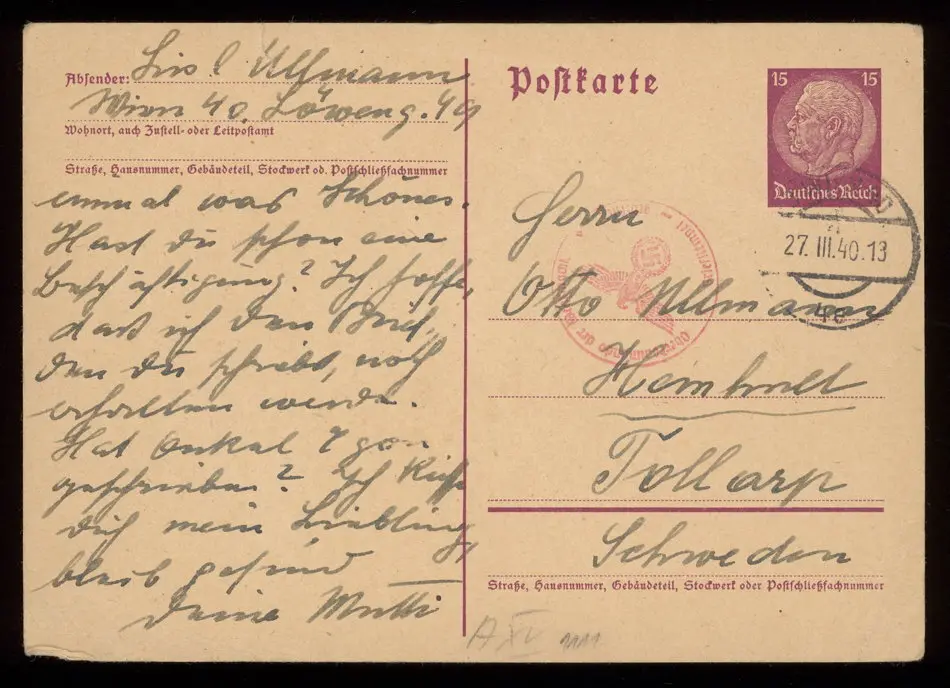 Absender: Lisl Ullmann
Wien 40, Löweng. 49
Wohnort, auch Zustell- oder Leitpostamt
Straße, Hausnummer, Gebäudeteil, Stockwerk od. Postschließfachnummer
einmal was Schönes.
Hast du schon eine
Beschäftigung? Ich hoffe,
dass ich den Brief,
den du schriebst, noch
erhalten werde.
Hat Onkel Egon
geschrieben? Ich küsse
dich mein Liebling,
bleib gesund
Deine Mutti
Postkarte
15 15
Deutsches Reich
27. III. 40. 13
Oberkommando der
Herrn
Otto Ullmann
Heimhult
Tollarp
Schweden
Straße, Hausnummer, Gebäudeteil, Stockwerk oder Postschließfachnummer
A XV